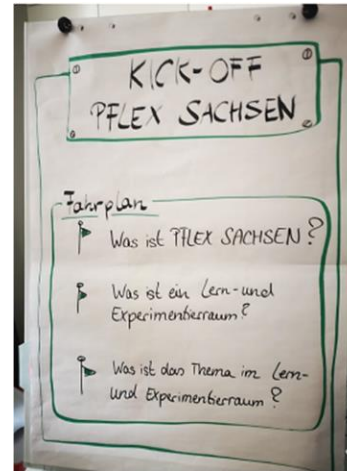 KICK-OFF
PFLEX SACHSEN
Fahrplan
Was ist PFLEX SACHSEN?
Was ist ein Lern- und
Experimentierraum?
Was ist das Thema im Lern-
und Experimentierraum?